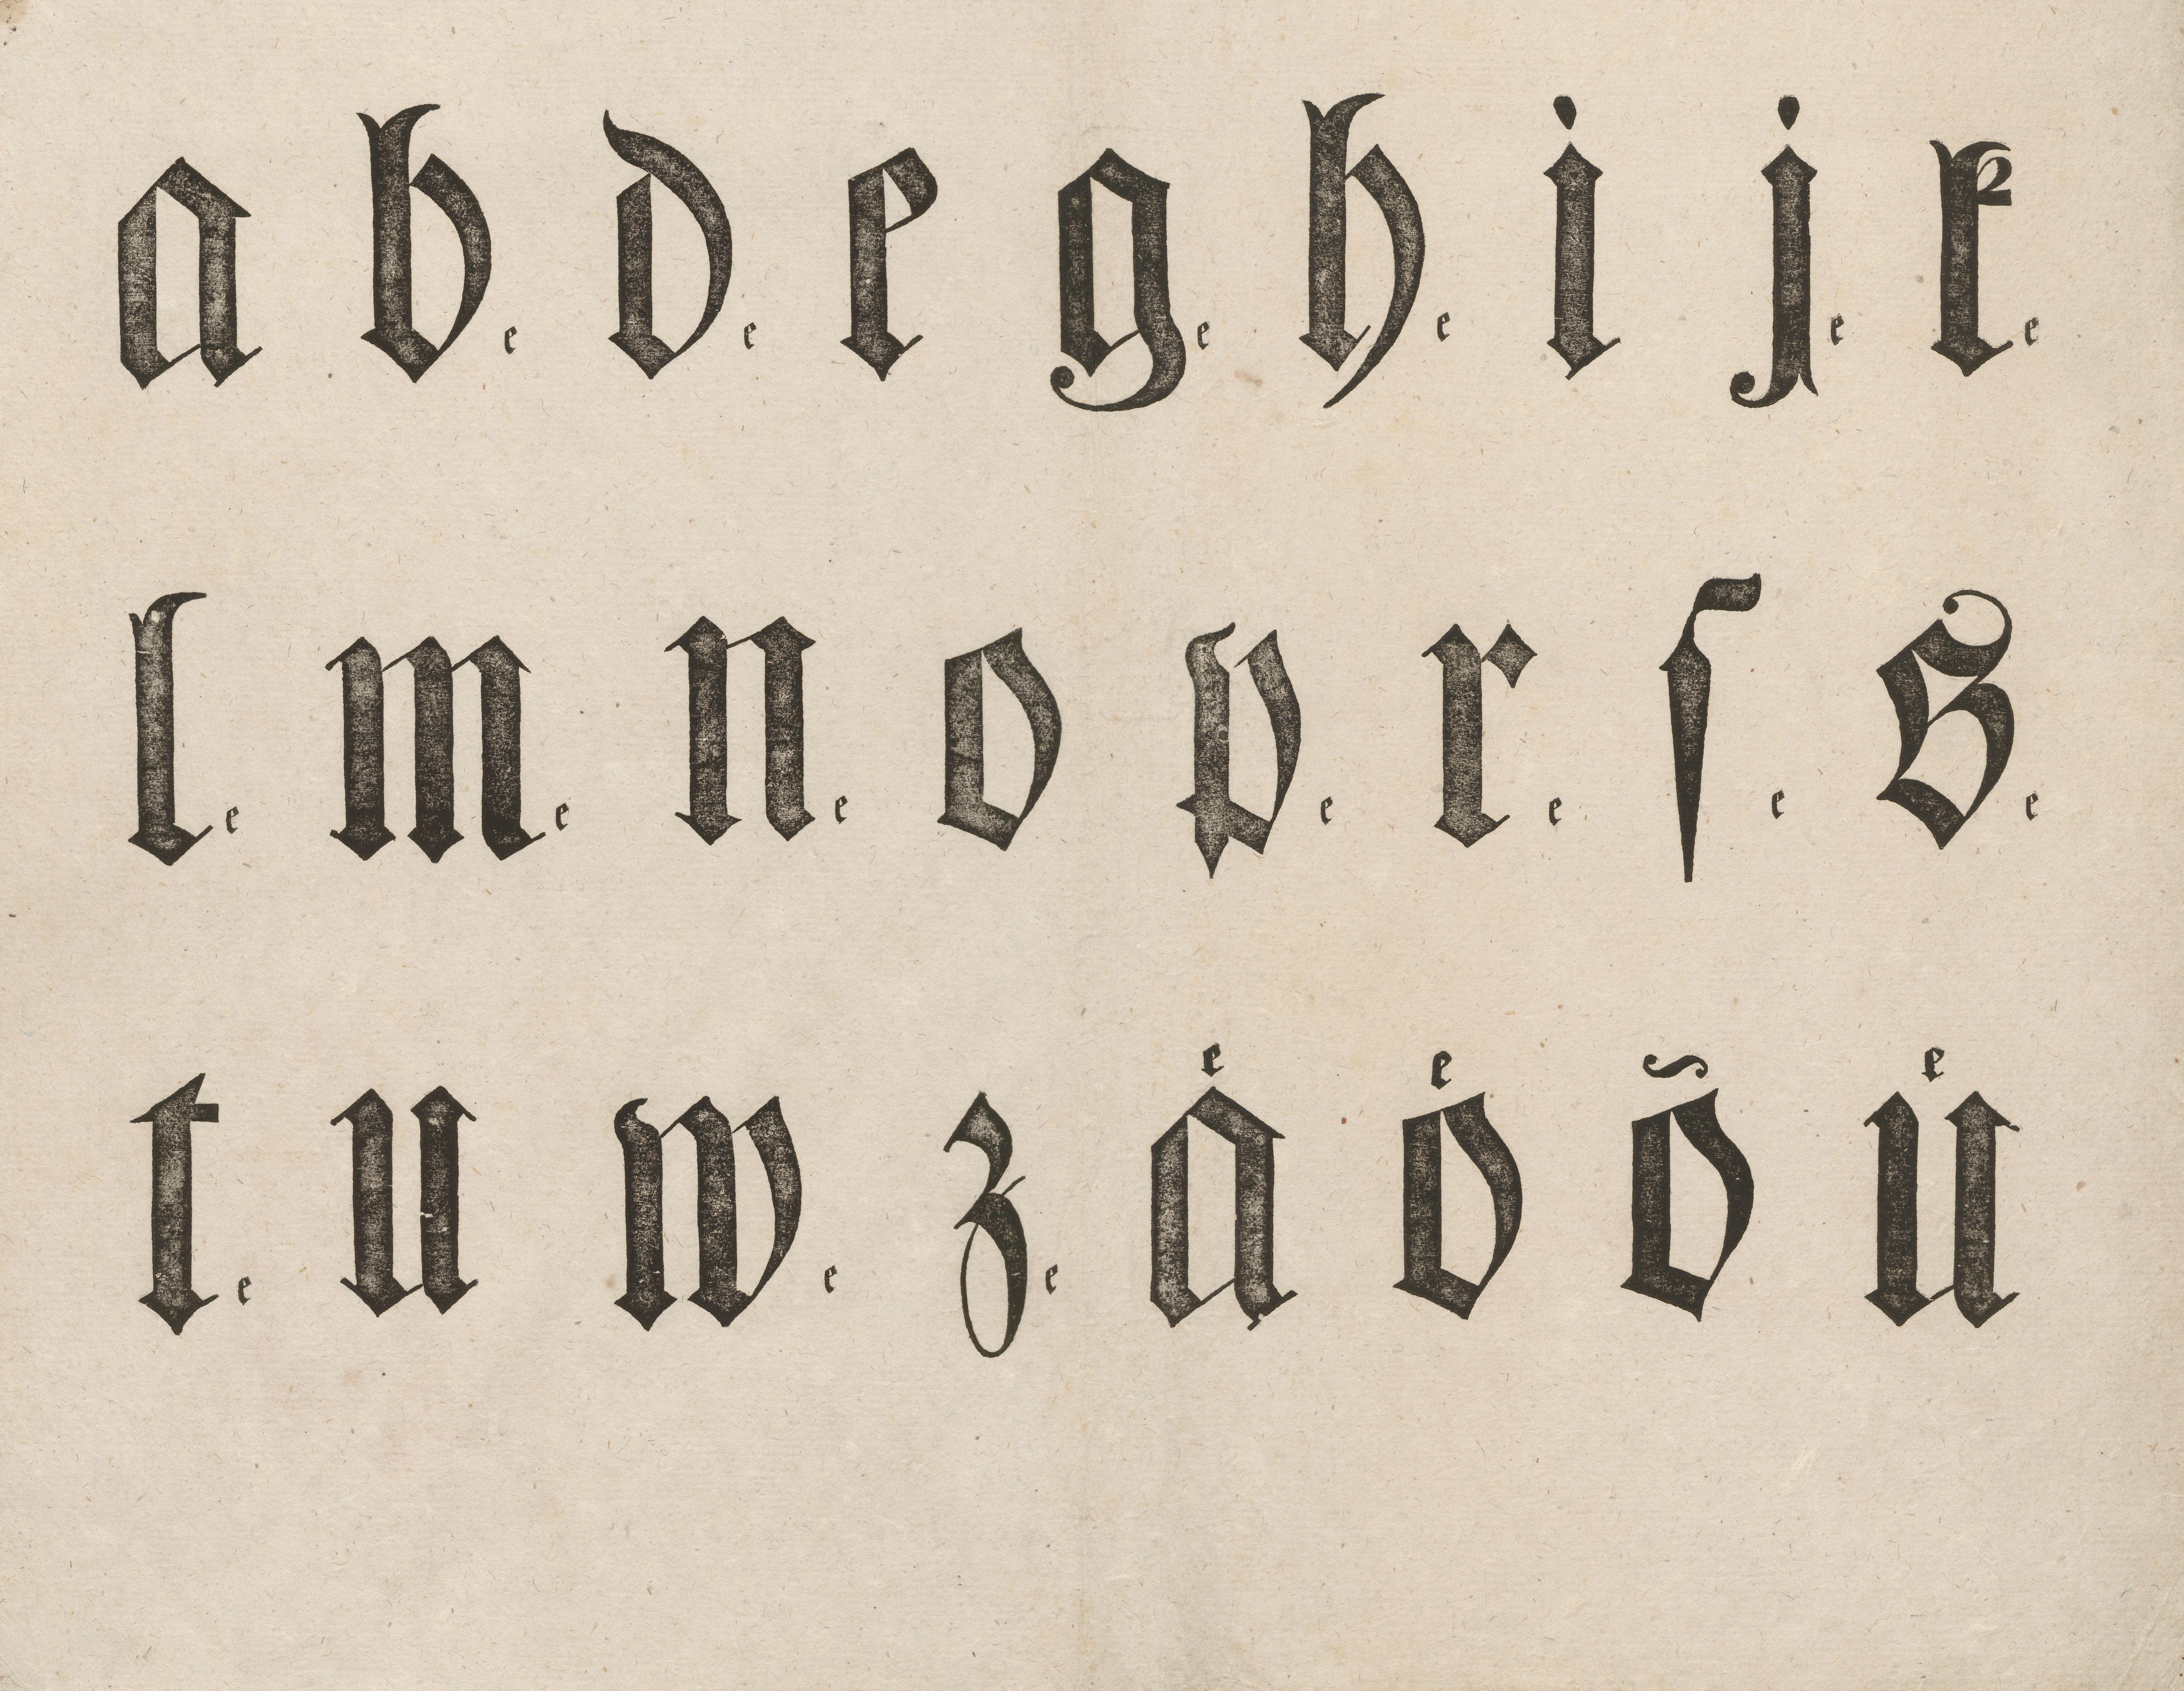 a b.e d.e e g.e h.e i j.e k.e
l.e m.e n.e o p.e r.e ſ.e s.e
t.e u w.e z.e aͤ oͤ õ uͤ